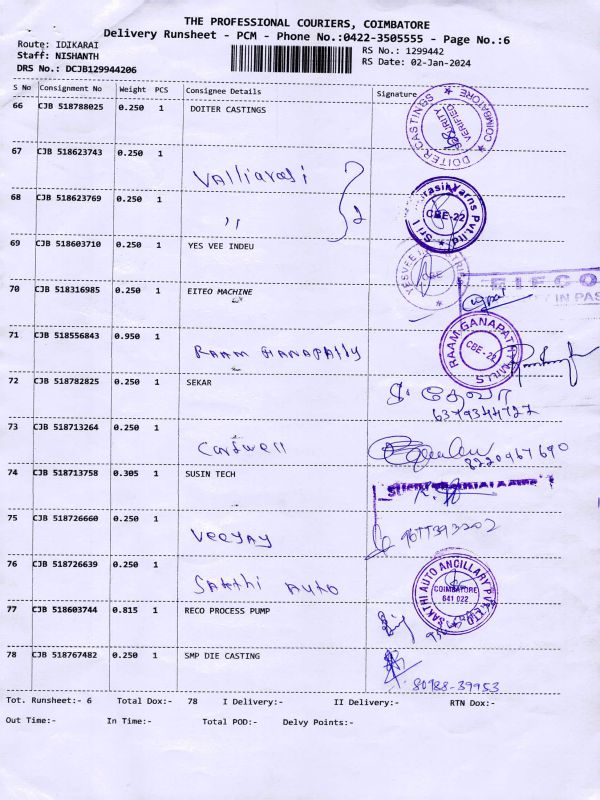 THE PROFESSIONAL COURIERS, COIMBATORE
Delivery Runsheet - PCM - Phone No.:0422-3505555 - Page No.:6
Route: IDIKARAI
RS No.: 1299442
Staff: NISHANTH
RS Date: 02-Jan-2024
DRS No.: DCJB129944206
S No Consignment No Weight PCS Consignee Details Signature
66 CJB 518788025 0.250 1 DOITER CASTINGS
DOITER CASTINGS * COIMBATORE *
SECURITY VERIFIED
67 CJB 518623743 0.250 1
Valliarasi
68 CJB 518623769 0.250 1
,, 2
CBE-22
69 CJB 518603710 0.250 1 YES VEE INDEU
CBE
70 CJB 518316985 0.250 1 EITEO MACHINE
71 CJB 518556843 0.950 1 RAAM GANAPATHY
RAAM GANAPATHI MILLS
CBE-22
72 CJB 518782825 0.250 1 SEKAR
6379344727
73 CJB 518713264 0.250 1
Cardwell
8220967690
74 CJB 518713758 0.305 1 SUSIN TECH
75 CJB 518726660 0.250 1
Veejay
9677393202
76 CJB 518726639 0.250 1
Sakthi Auto
SAKTHI AUTO ANCILLARY PVT LTD
COIMBATORE
641 022
77 CJB 518603744 0.815 1 RECO PROCESS PUMP
78 CJB 518767482 0.250 1 SMP DIE CASTING
80988-39953
Tot. Runsheet:- 6 Total Dox:- 78 I Delivery:- II Delivery:- RTN Dox:-
Out Time:- In Time:- Total POD:- Delvy Points:-